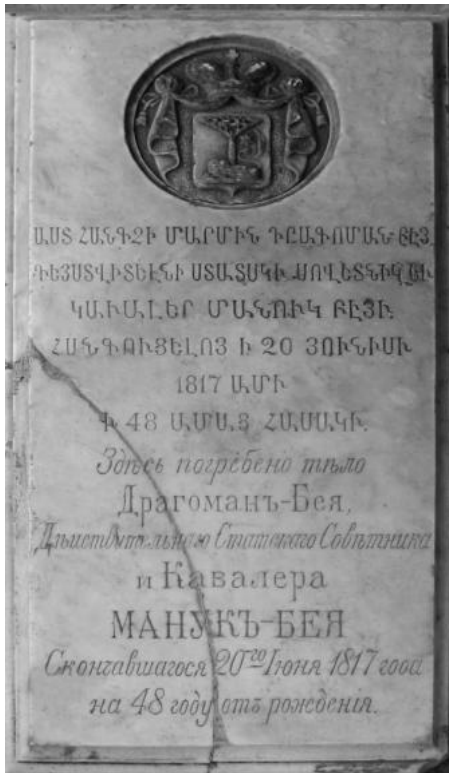 ԱՍՏ ՀԱՆԳՉԻ ՄԱՐՄԻՆ ԴՐԱԳՈՄԱՆ ԲԷՅ
ԴԵՅՍՏՎԻՏԵԼՆԻ ՍՏԱՏՍԿԻ ՍՈՎԵՏՆԻԿ ԵՒ
ԿԱՒԱԼԵՐ ՄԱՆՈՒԿ ԲԷՅԻ.
ՀԱՆԳՈՒՑԵԼՈՅ Ի 20 ՅՈՒՆԻՍԻ
1817 ԱՄԻ
Ի 48 ԱՄԱՅ ՀԱՍԱԿԻ.
Здѣсь погребено тѣло
Драгоманъ-Бея,
Дѣиствительнаго Статскаго Совѣтника
и Кавалера
МАНУКЪ-БЕЯ
Скончавшагося 20го Іюня 1817 года
на 48 году отъ рожденія.